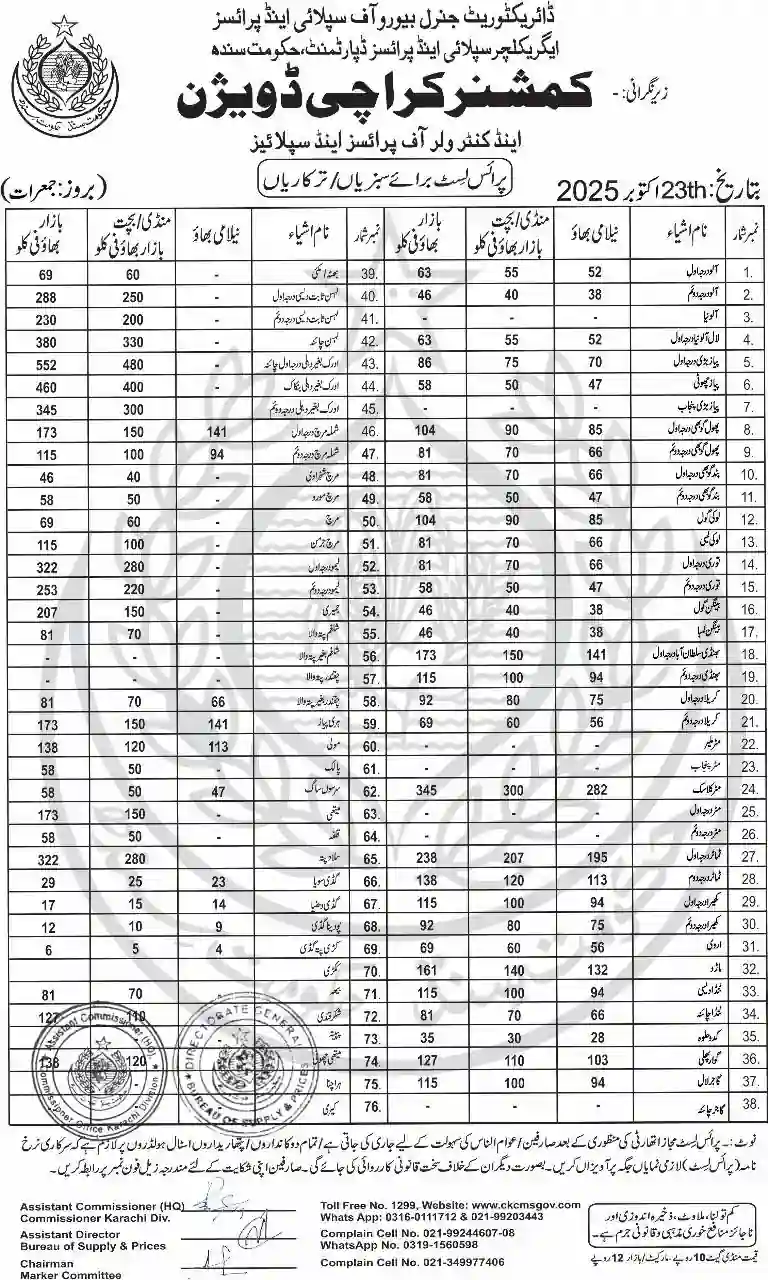 ڈائریکٹوریٹ جنرل بیورو آف سپلائی اینڈ پرائسز
ایگریکلچر سپلائی اینڈ پرائسز ڈپارٹمنٹ، حکومت سندھ
زیر نگرانی: -
کمشنر کراچی ڈویژن
اینڈ کنٹرولر آف پرائسز اینڈ سپلائیز
بتاریخ: 23th اکتوبر 2025
پرائس لسٹ برائے سبزیاں / ترکاریاں
(بروز: جمعرات)
نمبر شمار نام اشیاء نیلامی بھاؤ منڈی / بچت بازار بھاؤ فی کلو بازار بھاؤ فی کلو نمبر شمار نام اشیاء نیلامی بھاؤ منڈی / بچت بازار بھاؤ فی کلو بازار بھاؤ فی کلو
1. آلو درجہ اول 52 55 63 39. بھٹہ / مکئی - 60 69
2. آلو درجہ دوئم 38 40 46 40. لہسن ثابت دیسی درجہ اول - 250 288
3. آلو نیا - - - 41. لہسن ثابت دیسی درجہ دوئم - 200 230
4. لال آلو نیا درجہ اول 52 55 63 42. لہسن چائنہ - 330 380
5. پیاز بڑی درجہ اول 70 75 86 43. ادرک بغیر دھلی درجہ اول چائنہ - 480 552
6. پیاز چھوٹی 47 50 58 44. ادرک بغیر دھلی بنکاک - 400 460
7. پیاز بڑی پنجاب - - - 45. ادرک بغیر دھلی درجہ دوئم - 300 345
8. پھول گوبھی درجہ اول 85 90 104 46. شملہ مرچ درجہ اول 141 150 173
9. پھول گوبھی درجہ دوئم 66 70 81 47. شملہ مرچ درجہ دوئم 94 100 115
10. بند گوبھی درجہ اول 66 70 81 48. مرچ شہزادی - 40 46
11. بند گوبھی درجہ دوئم 47 50 58 49. مرچ - 50 58
12. لوکی گول 85 90 104 50. مرچ - 60 69
13. لوکی لمبی 66 70 81 51. مرچ جرمن - 100 115
14. توری درجہ اول 66 70 81 52. لیمو درجہ اول - 280 322
15. توری درجہ دوئم 47 50 58 53. لیمو درجہ دوئم - 220 253
16. بینگن گول 38 40 46 54. - 150 207
17. بینگن لمبا 38 40 46 55. شلغم پتہ والا - 70 81
18. بھنڈی سلطان آباد درجہ اول 141 150 173 56. شلغم بغیر پتہ والا - - -
19. بھنڈی درجہ دوئم 94 100 115 57. چقندر پتہ والا - - -
20. کریلا درجہ اول 75 80 92 58. چقندر بغیر پتہ والا 66 70 81
21. کریلا درجہ دوئم 56 60 69 59. ہری پیاز 141 150 173
22. مٹر ملیر - - - 60. مولی 113 120 138
23. مٹر پنجاب - - - 61. پالک - 50 58
24. مٹر کلاسک 282 300 345 62. سرسوں ساگ 47 50 58
25. مٹر درجہ اول - - - 63. میتھی - 150 173
26. مٹر درجہ دوئم - - - 64. - 50 58
27. ٹماٹر درجہ اول 195 207 238 65. سلاد پتہ - 280 322
28. ٹماٹر درجہ دوم 113 120 138 66. گڈی سویا 23 25 29
29. کھیرا درجہ اول 94 100 115 67. گڈی دھنیا 14 15 17
30. کھیرا درجہ دوئم 75 80 92 68. پودینا گڈی 9 10 12
31. اروی 56 60 69 69. کڑی پتہ گڈی 4 5 6
32. 132 140 161 70. ککڑی
33. ٹنڈا دیسی 94 100 115 71. - 70 81
34. ٹنڈا چائنہ 66 70 81 72. شکرقندی - 110 127
35. کدو حلوہ 28 30 35 73. -
36. گوار پھلی 103 110 127 74. میتھی - 120 138
37. گاجر لال 94 100 115 75. ہرا چنا
38. گاجر چائنہ - - - 76. کیری
Assistant Commissioner (HQ)
Commissioner Office Karachi Division
DIRECTORATE GENERAL
BUREAU OF SUPPLY & PRICES
نوٹ: - پرائس لسٹ مجاز اتھارٹی کی منظوری کے بعد صارفین / عوام الناس کی سہولت کے لیے جاری کی جاتی ہے / تمام دوکانداروں / پتھاریداروں / اسٹال ہولڈروں پر لازم ہے کہ سرکاری نرخ
نامہ (پرائس لسٹ) لازمی نمایاں جگہ پر آویزاں کریں۔ بصورت دیگر ان کے خلاف سخت قانونی کارروائی کی جائے گی۔ صارفین اپنی شکایت کے لئے مندرجہ زیل فون نمبر پر رابطہ کریں۔
Assistant Commissioner (HQ)
Commissioner Karachi Div.
Assistant Director
Bureau of Supply & Prices
Chairman
Marker Committee
Toll Free No. 1299, Website: www.ckcmsgov.com
Whats App: 0316-0111712 & 021-99203443
Complain Cell No. 021-99244607-08
WhatsApp No. 0319-1560598
Complain Cell No. 021-349977406
کم تولنا، ملاوٹ، ذخیرہ اندوزی اور
ناجائز منافع خوری مذہبی و قانونی جرم ہے۔
قیمت منڈی گیٹ 10 روپے، مارکیٹ / بازار 12 روپے